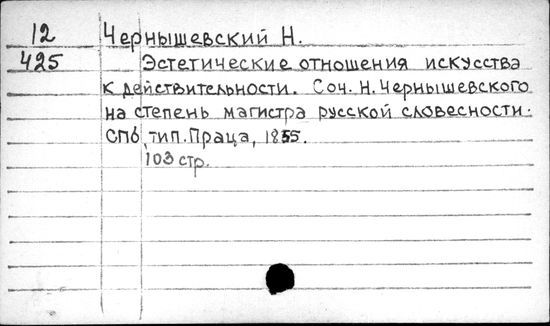 12 Чернышевский Н.
425 Эстетические отношения искусства
к действительности. Соч. Н. Чернышевского
на степень магистра русской словесности.
СПб, тип. Праца, 1855.
103 стр.